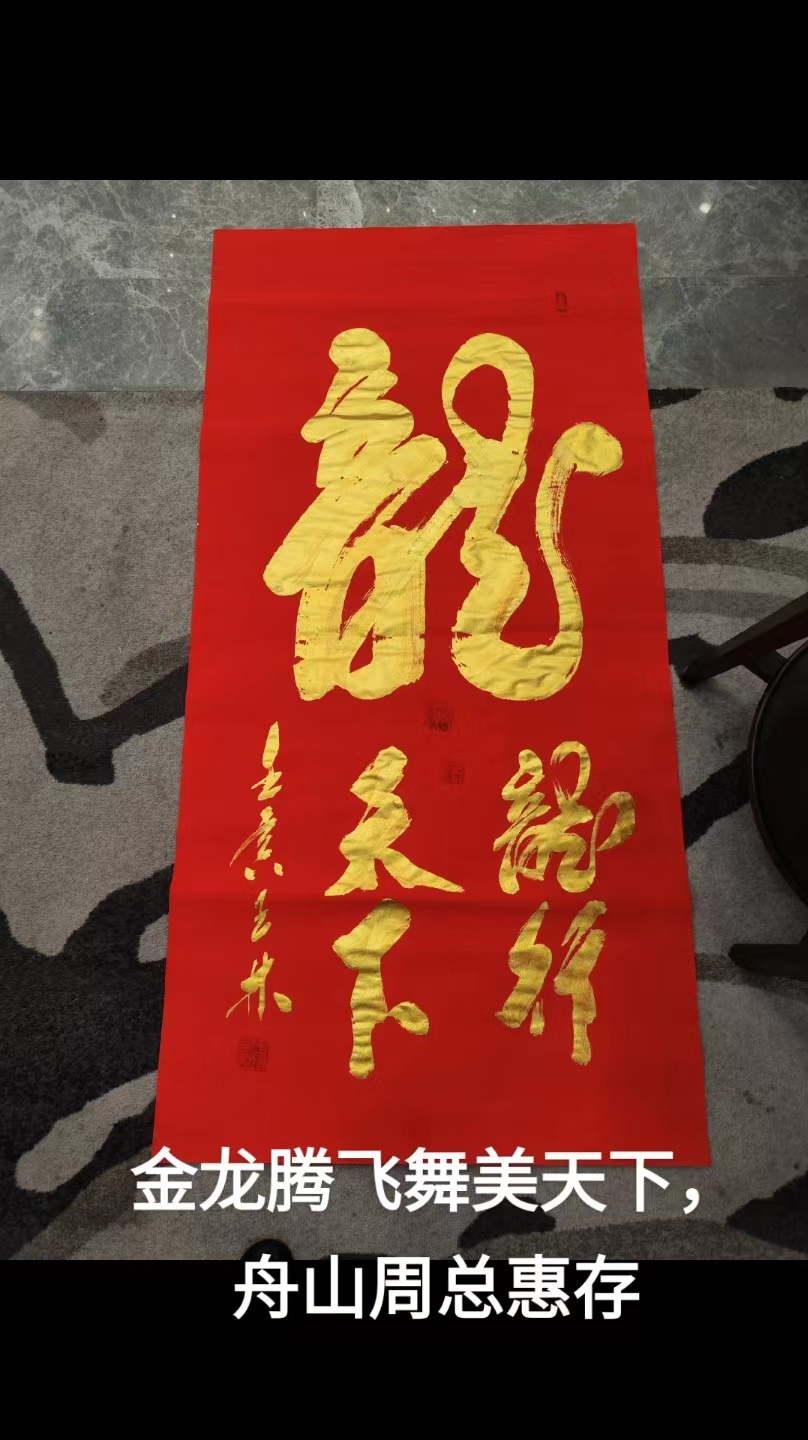 龍
龍行
天下
壬寅王林
金龙腾飞舞美天下，
舟山周总惠存